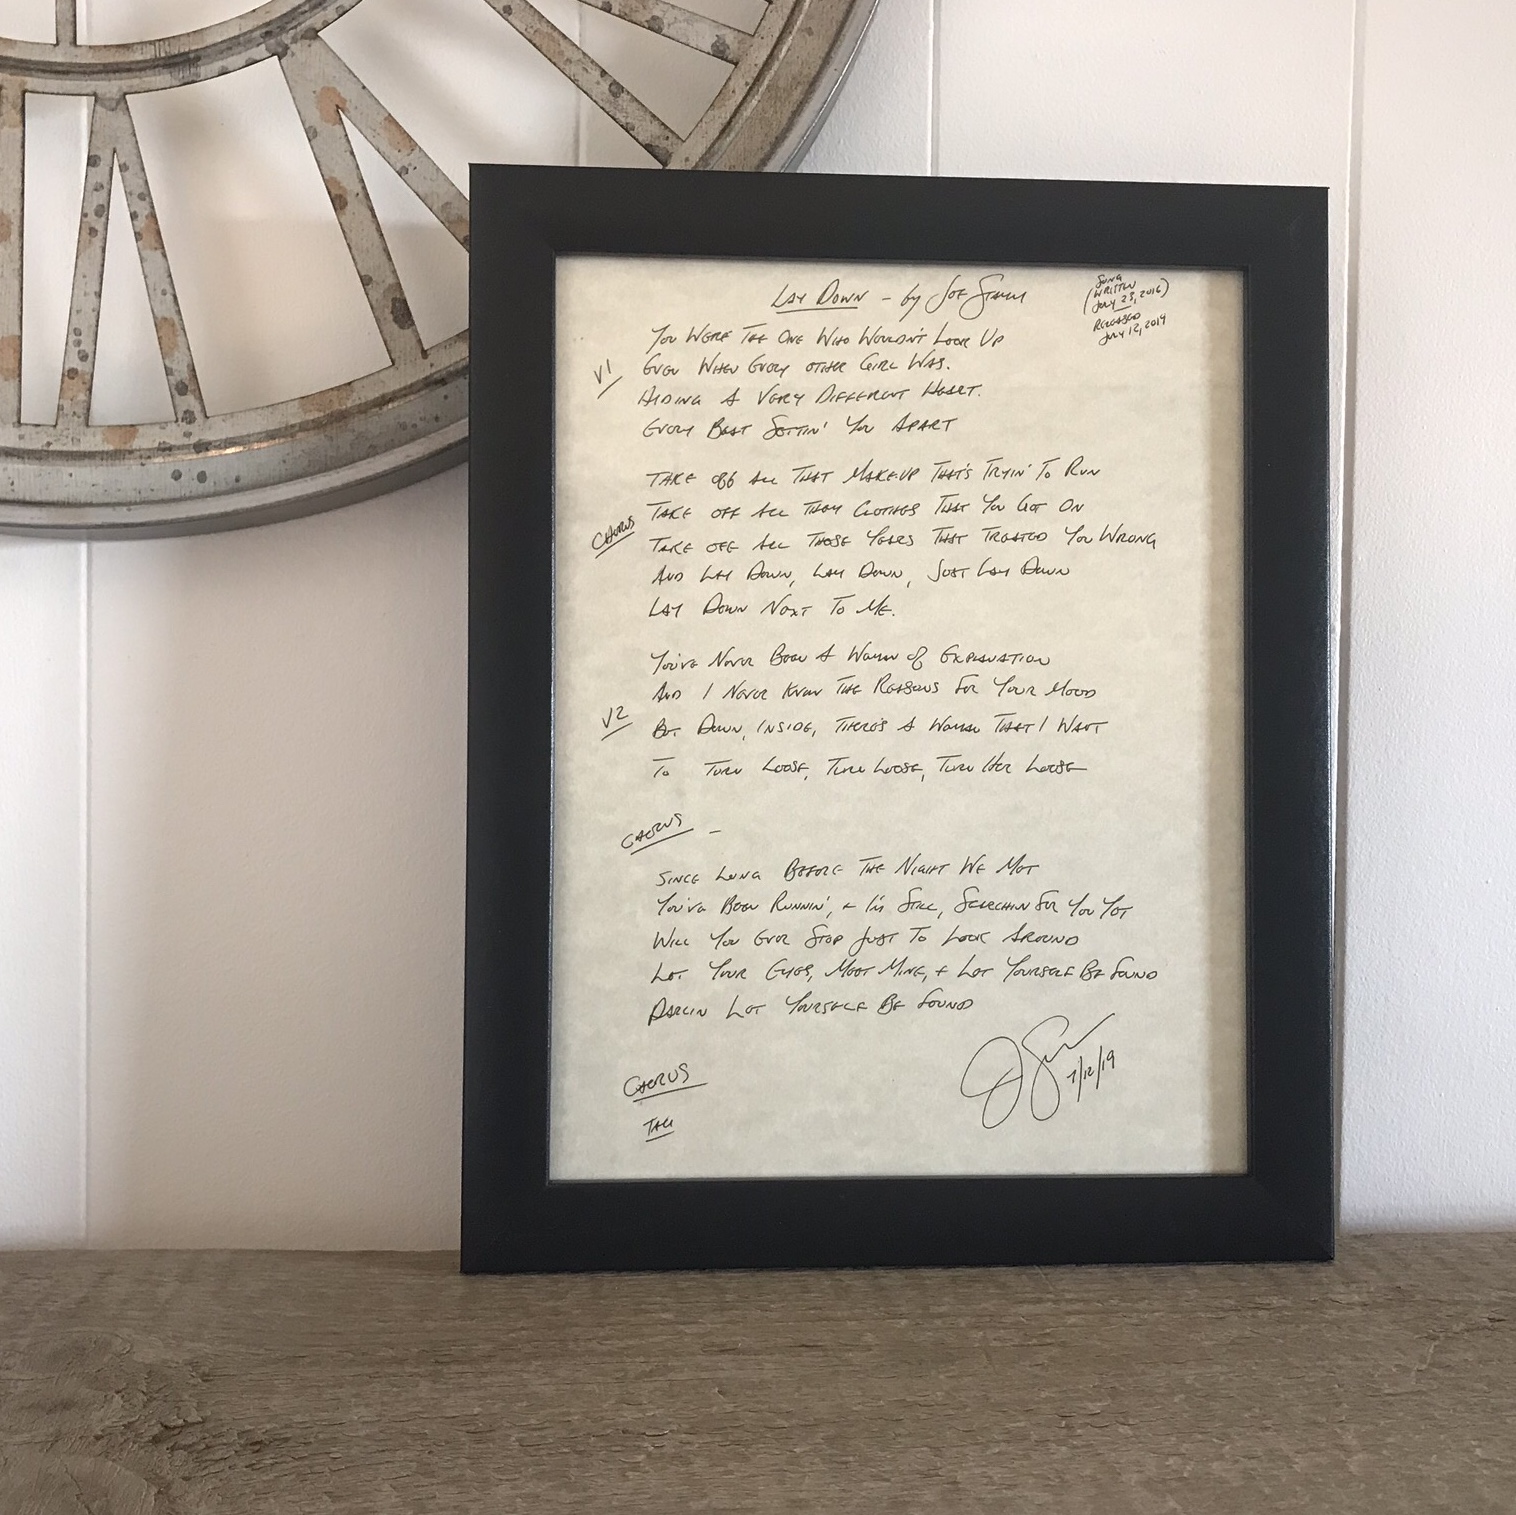 Lay Down - by Joe Stamm
Song
(Written
July 23, 2016)
Released
July 12, 2019
V1
You Were The One Who Wouldn't Look Up
Even When Every other Girl Was.
Hiding A Very Different Heart.
Every Beat Settin' You Apart
Chorus
Take off All That Makeup That's Tryin' To Run
Take off All Them Clothes That You Got On
Take off All Those Years That Treated You Wrong
And Lay Down, Lay Down, Just Lay Down
Lay Down Next To Me.
V2
You've Never Been A Woman of Explanation
And I Never Know The Reasons For Your Mood
But Down, Inside, There's A Woman That I Want
To Turn Loose, Turn Loose, Turn Her Loose
Chorus -
Since Long Before The Night We Met
You've Been Runnin', + I'm Still, Searchin For You Yet
Will You Ever Stop Just To Look Around
Let Your Eyes, Meet Mine, + Let Yourself Be Found
Darlin Let Yourself Be Found
7/12/19
Chorus
Tag